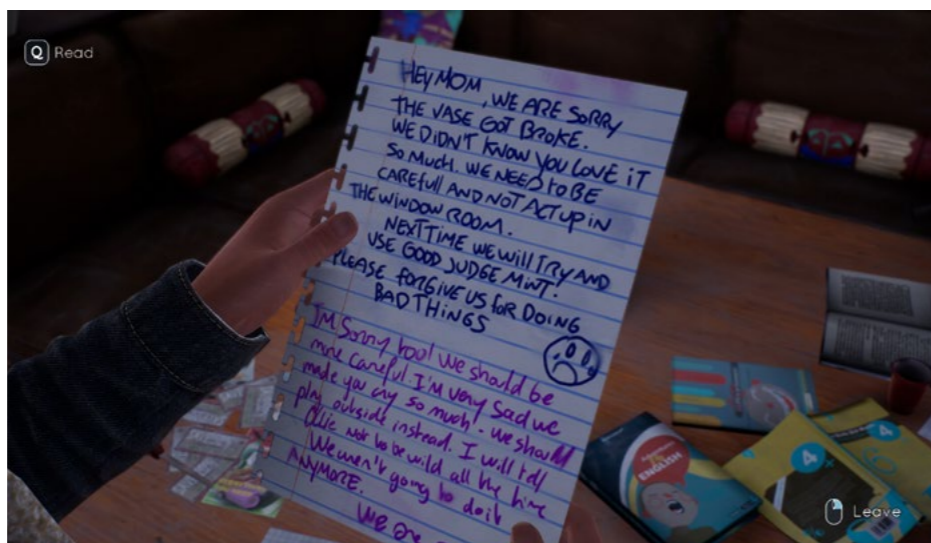 Q Read
HEY MOM, WE ARE SORRY
THE VASE GOT BROKE.
WE DIDN'T KNOW YOU LOVE iT
SO MUCH. WE NEED to BE
CAREFUll AND NOT ACT UP IN
THE WINDOW ROOM.
NEXT TIME WE Will TRY AND
USE GOOD JUDGE MiNT.
PLEASE FORGIVE US FOR DOING
BAD THINGS
I'm Sorry too! We should be
more careful. I'm very Sad we
made you cry so much. We should
play outside instead. I will tell
Ollie not to be wild all the time
We weren't going to do it
ANYMORE.
We are
ENGLISH
4
4
Leave